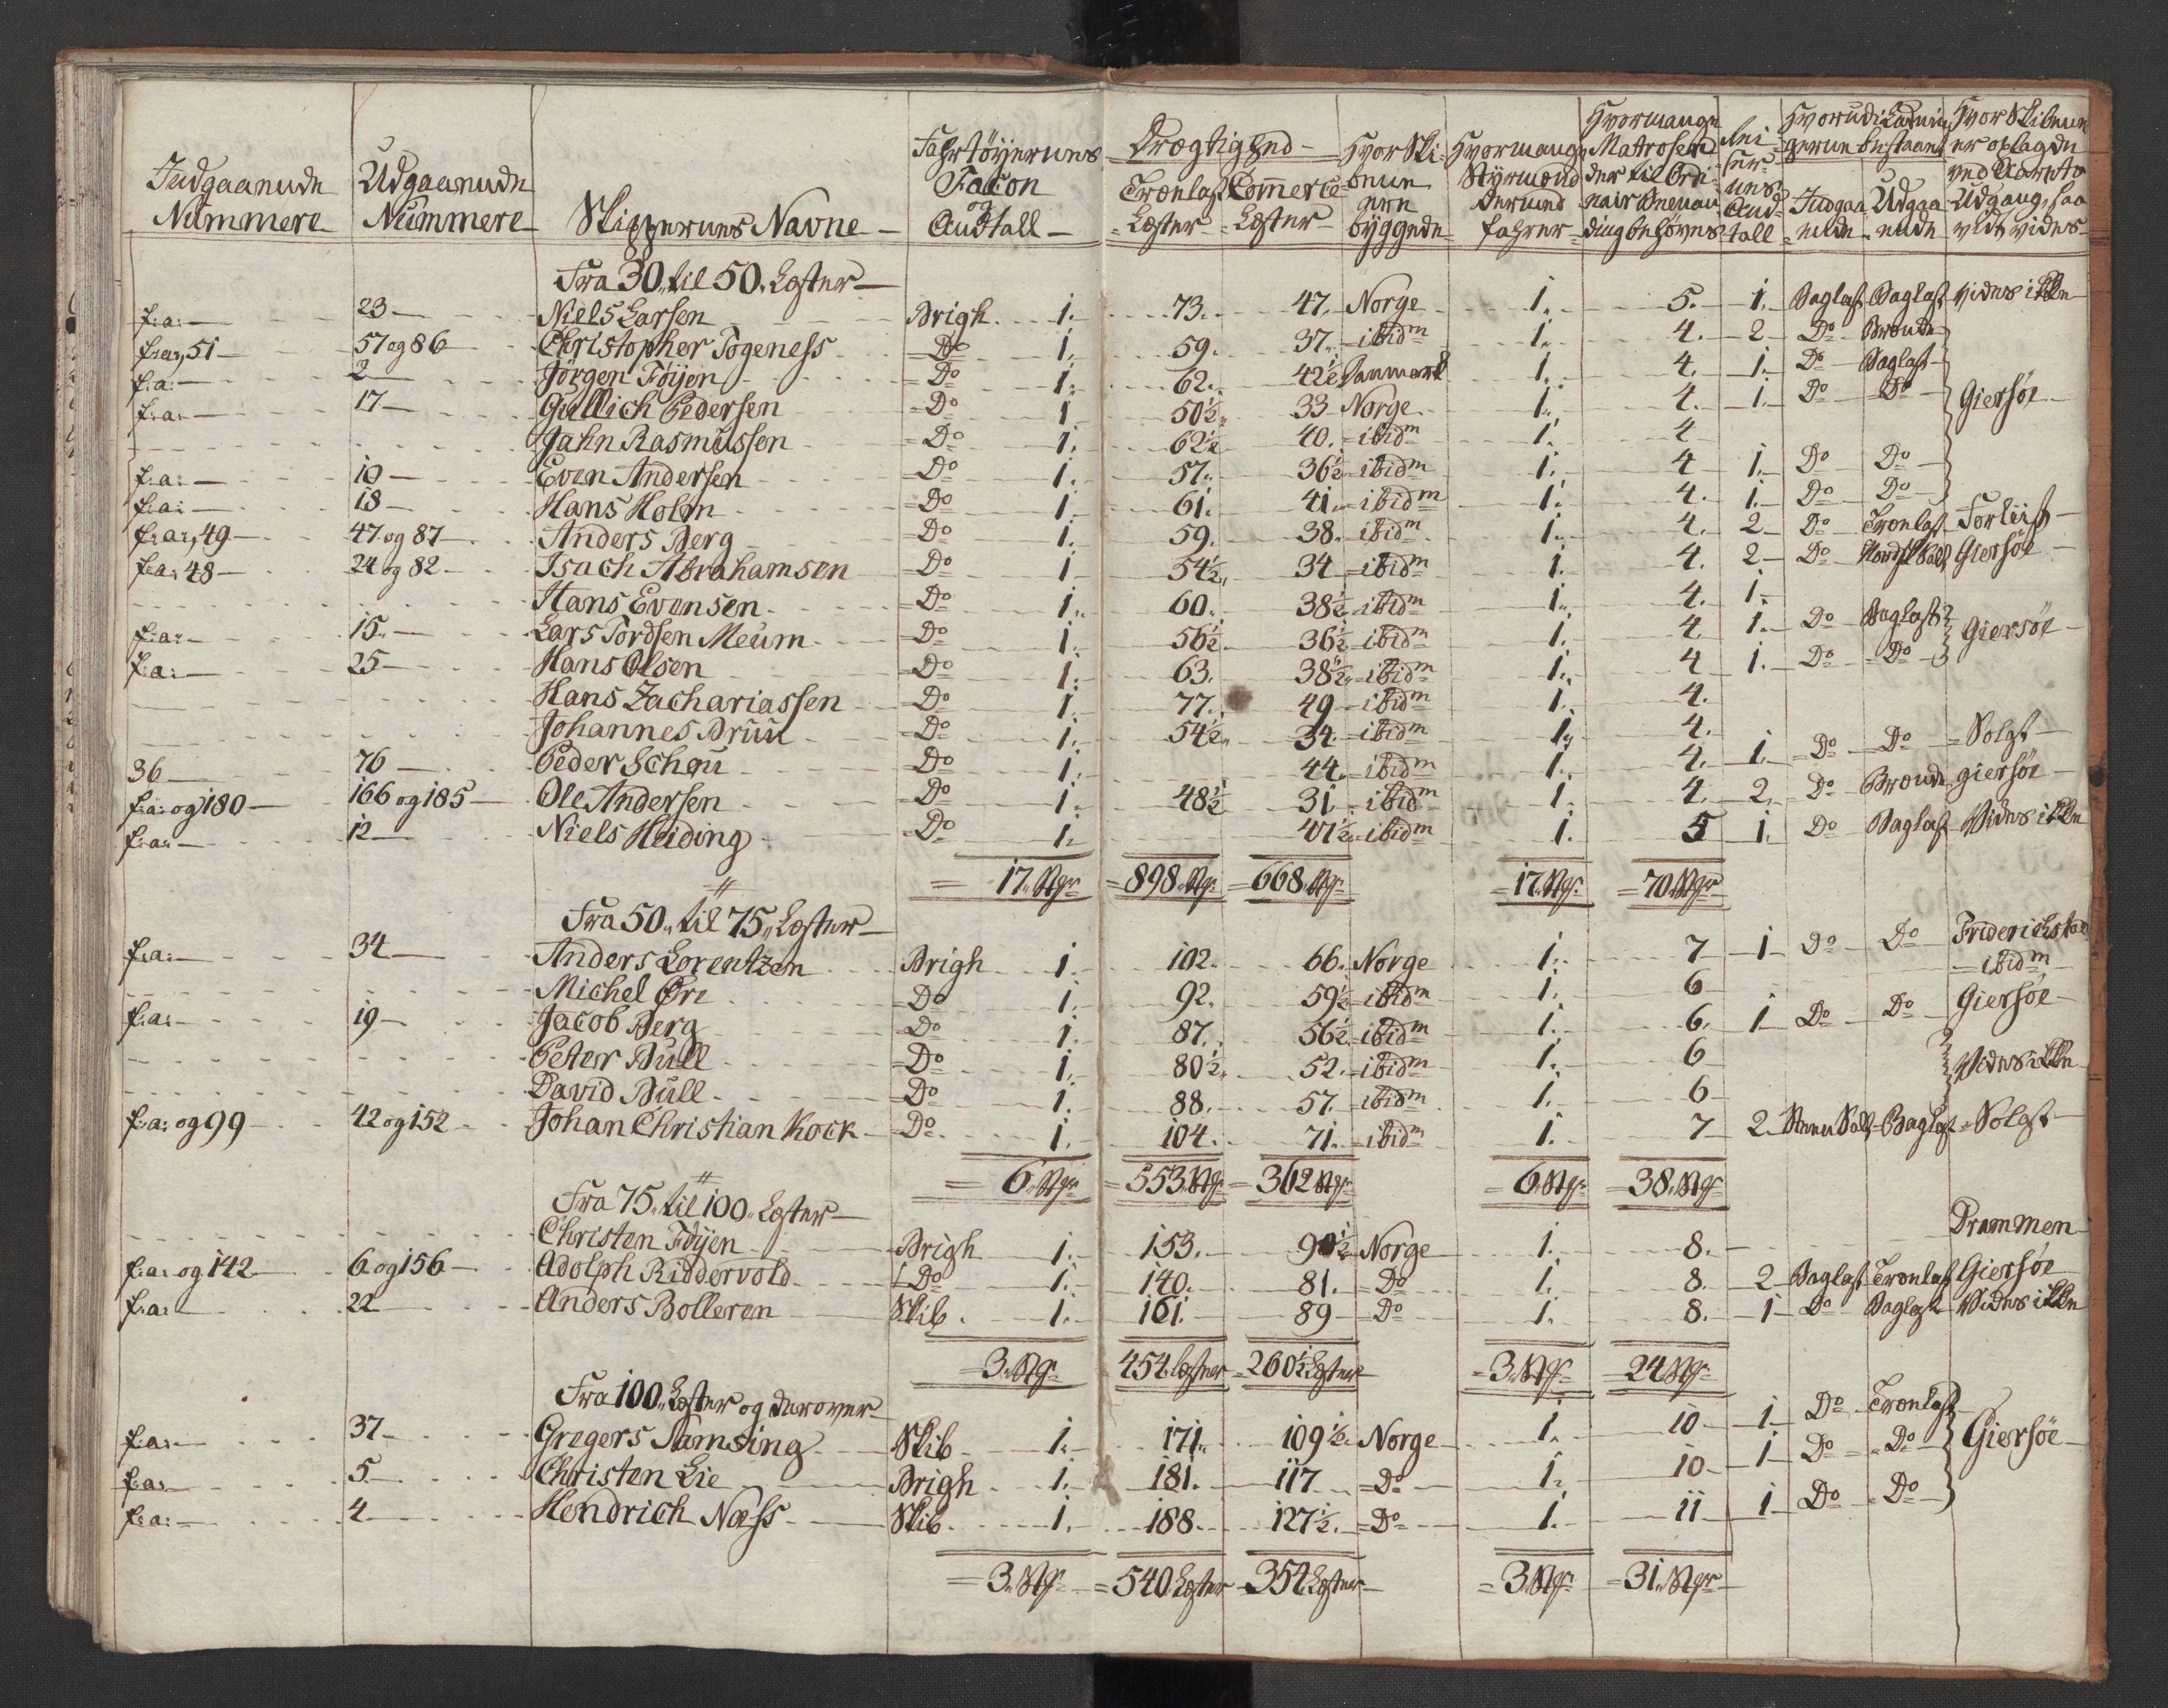 Indgaaende Nummere | Udgaaende Nummere | Skippernes Navne | Fahrtöyernes Facon og Andtall | Drægtighed Trælast Læster | Commerce Læster | Hvor Skibene ere byggede | Hvormange Styrmænd dermed fahrer | Hvormange Mattroser der til Ordinair Bemanding behøves | Reisernes Andtall | Hvorudi Ladningerne bestaaet Indgaaende | Udgaaende | Hvor Skibene er oplagde ved Aarets Udgang, saa vidt vides
Fra 30,, til 50,, Læster
f: a: | 23 | Niels Larsen | Brigh 1. | 73. | 47. | Norge | 1. | 5. | 1. | Baglast | Baglast | Vides ikke
f: a:, 51 | 57 og 86 | Christopher Togeness | Do 1. | 59. | 37. | ibidm | 1. | 4. | 2 | Do | Brænde
f: a: | 2 | Jörgen Föyen | Do 1. | 62. | 42½ | Danmark | 1. | 4. | 1. | Do | Baglast
f: a: | 17 | Gullich Pedersen | Do 1 | 50½ | 33 | Norge | 1. | 4. | 1. | Do | Do | Giersöe
Jahn Rasmussen | Do 1. | 62½ | 40. | ibidm | 1. | 4
f: a: | 10 | Even Andersen | Do 1. | 57. | 36½ | ibidm | 1. | 4 | 1. | Do | Do
f: a: | 18 | Hans Holm | Do 1. | 61. | 41. | ibidm | 1. | 4. | 1. | Do | Do
f: a:, 49 | 47 og 87 | Anders Berg | Do 1. | 59. | 38. | ibidm | 1. | 4. | 2 | Do | Trælast | Forliist
f: a:, 48 | 24 og 82 | Isach Abrahamsen | Do 1 | 54½ | 34 | ibidm | 1. | 4. | 2 | Do | Giersöe
Hans Evensen | Do 1. | 60. | 38½ | ibidm | 1. | 4. | 1.
f: a: | 15. | Lars Tordsen Meum | Do 1. | 56½ | 36½ | ibidm | 1. | 4. | 1. | Do | Baglast | Giersöe
f: a: | 25 | Hans Olsen | Do 1. | 63. | 38½ | ibidm | 1. | 4 | 1. | Do | Do
Hans Zachariassen | Do 1. | 77. | 49 | ibidm | 1. | 4.
Johannes Bruu | Do 1. | 54½ | 34. | ibidm | 1. | 4.
36 | 76 | Peder Schou | Do 1. | 44. | ibidm | 1. | 4. | 1. | Do | Do | Solgt
f: a: og 180 | 166 og 185 | Ole Andersen | Do 1. | 48½ | 31. | ibidm | 1. | 4. | 2. | Do | Brænde | giersöe
f: a: | 12 | Niels Heiding | Do 1. | 47½ | ibidm | 1. | 5 | 1. | Do | Baglast | Vides ikke
= 17. Stgr | = 898. Stgr | = 668. Stgr | = 17. Stgr | = 70. Stgr
Fra 50,, til 75,, Læster
f: a: | 34 | Anders Lorentzen | Brigh 1. | 102. | 66. | Norge | 1. | 7 | 1 | Do | Do | Friderichstad
Michel Öre | Do 1. | 92. | 59½ | ibidm | 1. | 6 | ibidm
f: a: | 19 | Jacob Berg | Do 1. | 87. | 56½ | ibidm | 1. | 6. | 1 | Do | Do | Giersöe
Peter Bull | Do 1. | 80½ | 52. | ibidm | 1. | 6 | Vides ikke
David Bull | Do 1. | 88. | 57. | ibidm | 1. | 6
f: a: og 99 | 42 og 152 | Johan Christian Kock | Do 1. | 104. | 71. | ibidm | 1. | 7 | 2 | Steen Salt | Baglast | Solgt
= 6. Stgr | = 553. Stgr | = 362 Stgr | = 6. Stgr | = 38. Stgr
Fra 75,, til 100,, Læster
Christen Föyen | Brigh 1. | 153. | 90½ | Norge | 1. | 8. | Drammen
f: a: og 142 | 6 og 156 | Adolph Riddervold | Do 1. | 140. | 81. | Do | 1. | 8. | 2 | Baglast | Trælast | Giersöe
f: a: | 22 | Anders Bolleren | Skib 1. | 161. | 89 | Do | 1. | 8. | 1 | Do | Baglast | Vides ikke
= 3. Stgr | 454 Læster | = 260½ Læster | = 3. Stgr | = 24. Stgr
Fra 100,, Læster og derover
f: a: | 37 | Gregers Samsing | Skib 1. | 171. | 109½ | Norge | 1. | 10 | 1 | Do | Trælast
f: a: | 5 | Christen Lie | Brigh 1. | 181. | 117 | Do | 1. | 10 | 1 | Do | Do | Giersöe
f: a: | 4 | Hendrich Næss | Skib 1. | 188. | 127½. | Do | 1. | 11 | 1 | Do | Do
= 3. Stgr | = 540 Læster | = 354 Læster | = 3. Stgr | = 31. Stgr